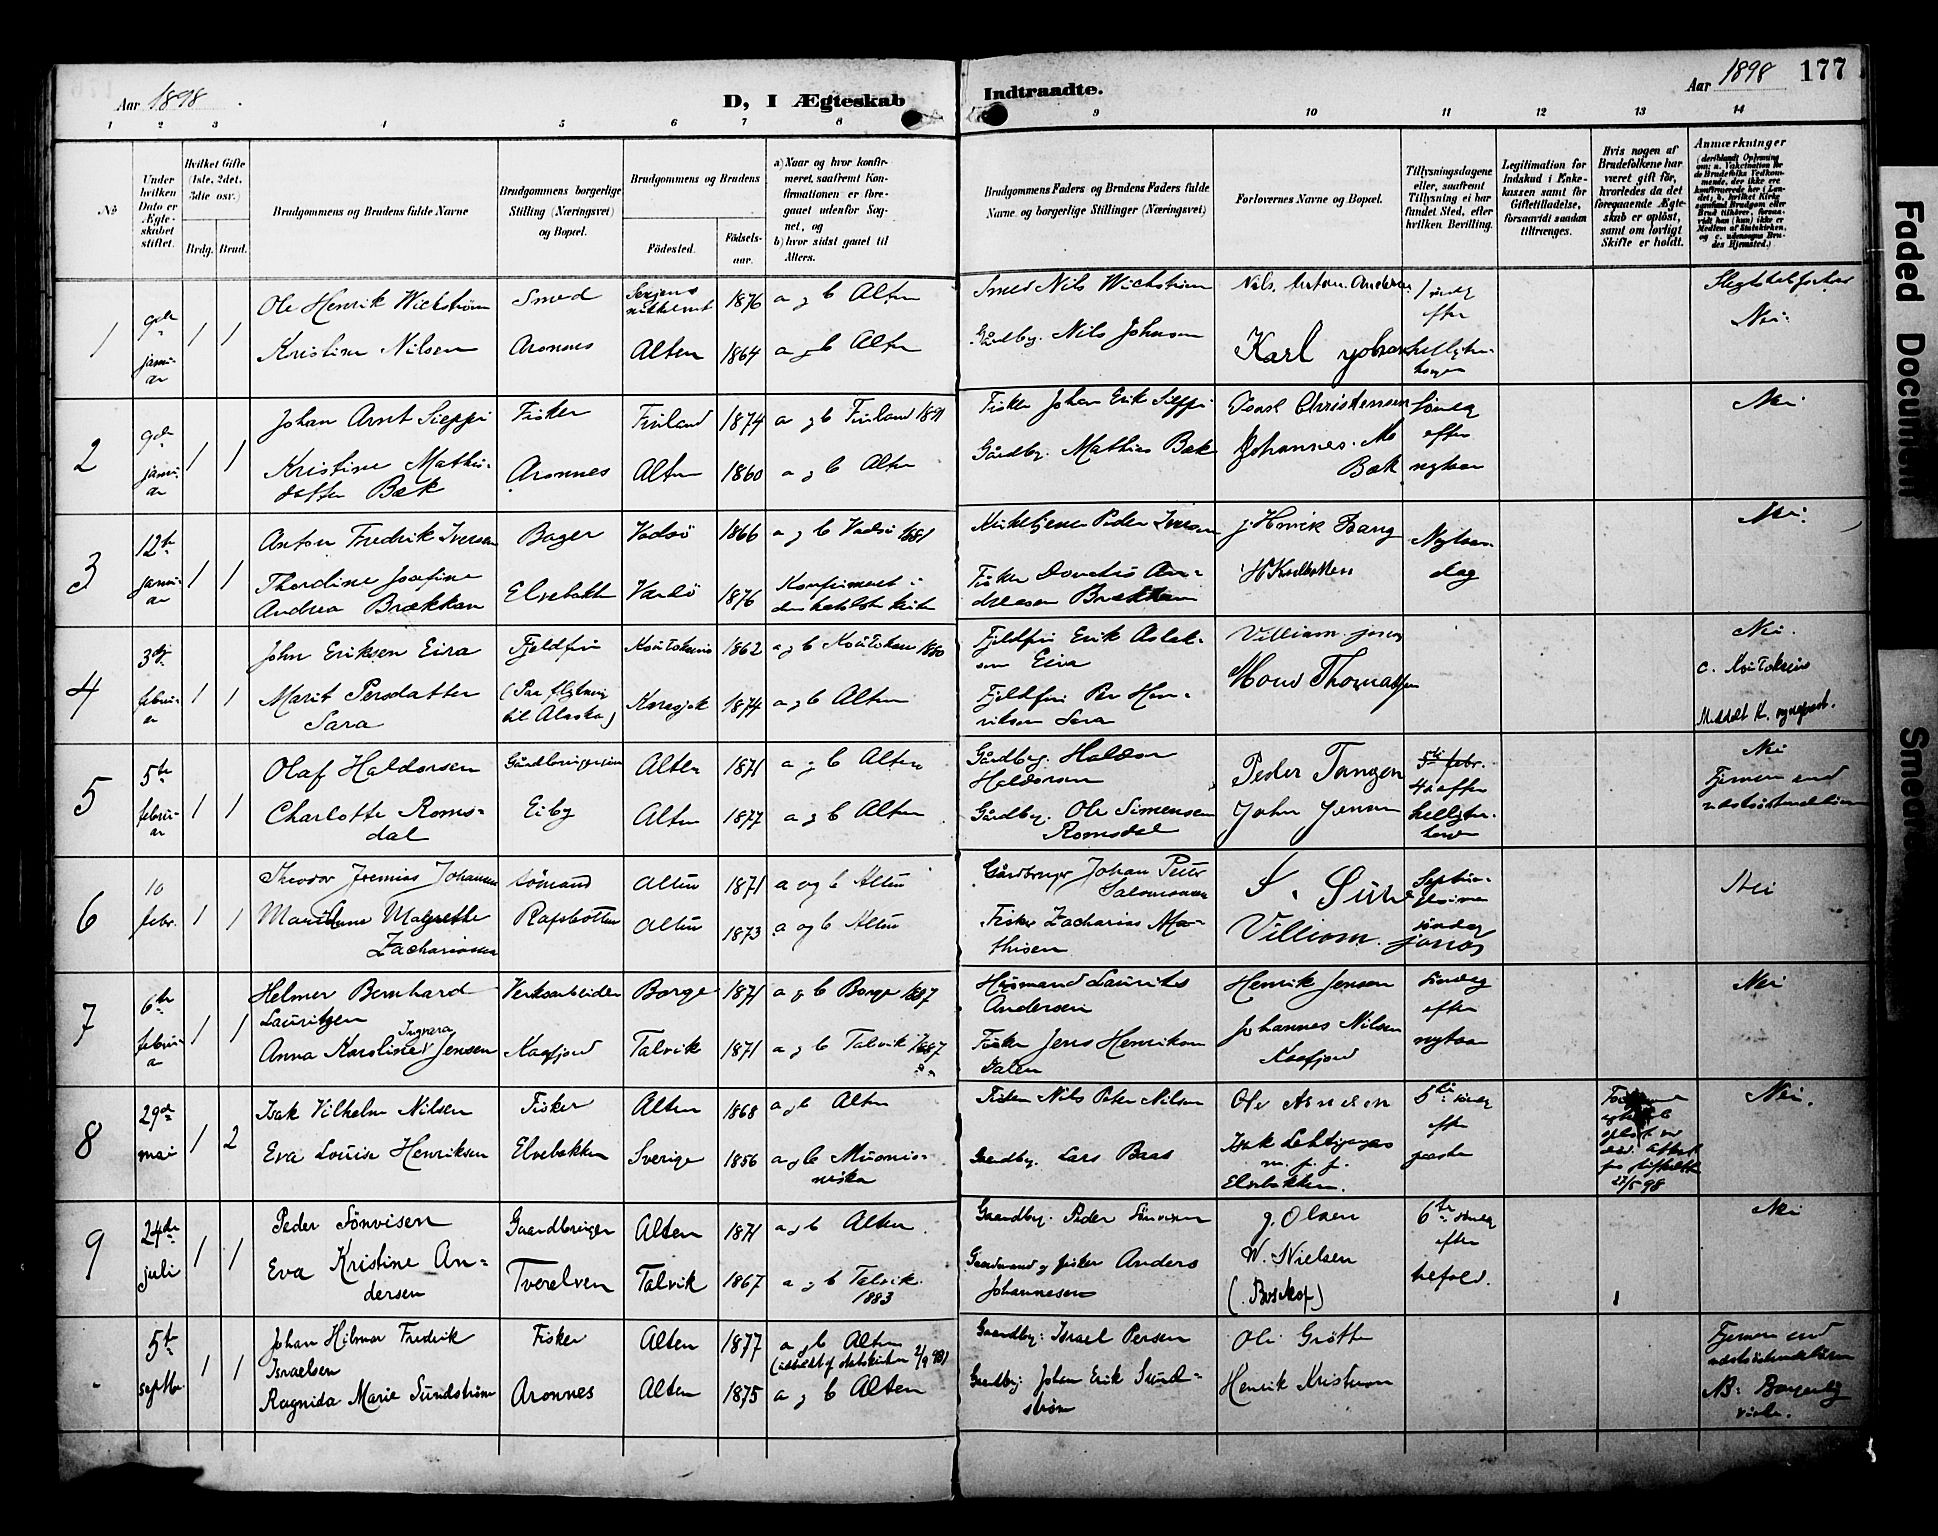 Aar 1898.
D, I Ægteskab
Indtraadte.
Aar 1898
177
1 2 3 4 5 6 7 8 9 10 11 12 13 14
No
Under hvilken Dato er Ægteskabet stiftet.
Hvilket Gifte (1ste, 2det, 3die osv.)
Brdg. Brud.
Brudgommens og Brudens fulde Navne
Brudgommens borgerlige Stilling (Næringsvei) og Bopæl.
Brudgommens og Brudens
Fødested.
Fødsels-aar.
a) Naar og hvor konfirmeret, saafremt Konfirmationen er foregaaet udenfor Sognet, og
b) hvor sidst gaaet til Alters.
Brudgommens Faders og Brudens Faders fulde Navne og borgerlige Stillinger (Næringsvei)
Forlovernes Navne og Bopæl.
Tillysningsdagene eller, saafremt Tillysning ei har fundet Sted, efter hvilken Bevilling.
Legitimation for Indskud i Enkekassen samt for Giftetilladelse, forsaavidt saadan tiltrænges.
Hvis nogen af Brudefolkene har været gift før, hvorledes da det foregaaende Ægteskab er opløst, samt om lovligt Skifte er holdt.
Anmærkninger
1
9de januar
1 1
Ole Henrik Wickstrøm
Smed
1876
a og b Alten
Smed Nils Wickstrøm
Kristine Nilsen
Aronnes
Alten
1864
a og b Alten
Gårdbr. Nils Johnsen
Karl
Nei
2
9de januar
1 1
Johan Arnt Sieppi
Fisker
Finland
1874
a og b Finland 1891
Fisker Johan Erik Sieppi
Christensen
Kristine Mathisdatter Bæk
Aronnes
Alten
1860
a og b Alten
Gårdbr. Mathias Bæk
Johannes. M Bæk
søndag efter nytaar
Nei
3
12te januar
1 1
Anton Fredrik Iversen
Bager
Vadsö
1866
a og b Vadsö 1881
Kirketjener Peder Iversen
J. Henrik Bang
Nytaarsdag
Nei.
Thordine Josefine Andrea Brækkan
Elvebakken
Vardö
1876
Konfirmeret i den katolske kirke
Fisker Andreasen Brækkan
4
3dje februar
1 1
John Eriksen Eira
Fjeldfin
Koutokeino
1862
a og b Koutokeino 1880
Fjeldfin Erik Aslaksen Eira
Villiam. Jonas
Marit Persdatter Sara
(Paa flytning til Alaska)
Karasjok
1874
a og b Alten
Fjeldfin Per Henriksen Sara
Mons Thomassen
Nei.
c. Koutokeino
5
5te februar
1 1
Olaf Haldorsen
Gårdbrugersøn
Alten
1871
a og b Alten
Gårdbr. Haldor Haldorsen
Peder Tangen
Charlotte Romsdal
Eiby
Alten
1877
a og b Alten
Gårdbr. Ole Simensen Romsdal
John Jensen
5te febr.
4 s. efter helligtrekonger
Nei
Fjernere end næstsøskendebörn
6
10 febr.
1 1
Theodor Jeremias Johansen
Sømand
Alten
1871
a og b Alten
Gårdbruger Johan Peter Salomonsen
Marianne Magrethe Zachariassen
Rafsbotten
Alten
1873
a og b Alten
Fisker Zacharias Mathisen
Villiam. Jonas
søndag
Nei
7
6te februar
1 1
Helmer Bernhard Lauritzen
Verksarbeider
Borge
1871
a og b Borge 1887
Husmand Laurits Andersen
Henrik Jensen
Anna Karoline Ingvara Jensen
Kaafjord
Talvik
1871
a og b Talvik 1887
Fisker Jens Henriksen Dalen
Johannes Nilsen
Kaafjord
søndag efter nytaar
Nei
8
29de mai
1 2
Isak Vilhelm Nilsen
Fisker
Alten
1868
a og b Alten
Fisker Nils Peter Nilsen
Eva Louise Henriksen
Elvebakken
Sverige
1856
a og b Muonioniska
Gaardbr. Lars Baas
m. p. p.
Elvebakken.
5te søndag efter paaske
27/5 98
Nei.
9
24de juli
1 1
Peder Sönvisen
Gaardbruger
Alten
1871
a og b Alten
Gaardbr. Peder Sönvisen
J. Olsen
Eva Kristine Andersen
Tverelven
Talvik
1867
a og b Talvik 1883
Gaardmand og fisker Anders Johannesen
W. Nielsen
(Bosekop)
6te søndag efter trefold.
Nei
5te septbr.
1 1
Johan Hilmar Fredrik Israelsen
Fisker
Alten
1877
a og b Alten
(udmeldt af statskirken 2/9 98)
Gaardbr. Israel Persen
Ole Grøtte
Ragnida Marie Sundström
Aronnes
Alten
1875
a og b Alten
Gaardbr. Johan Erik Sundström
Henrik Kristensen
Fjernere end næstsöskendebörn
NB: Borgerlig viede.
Faded Document
Smeared